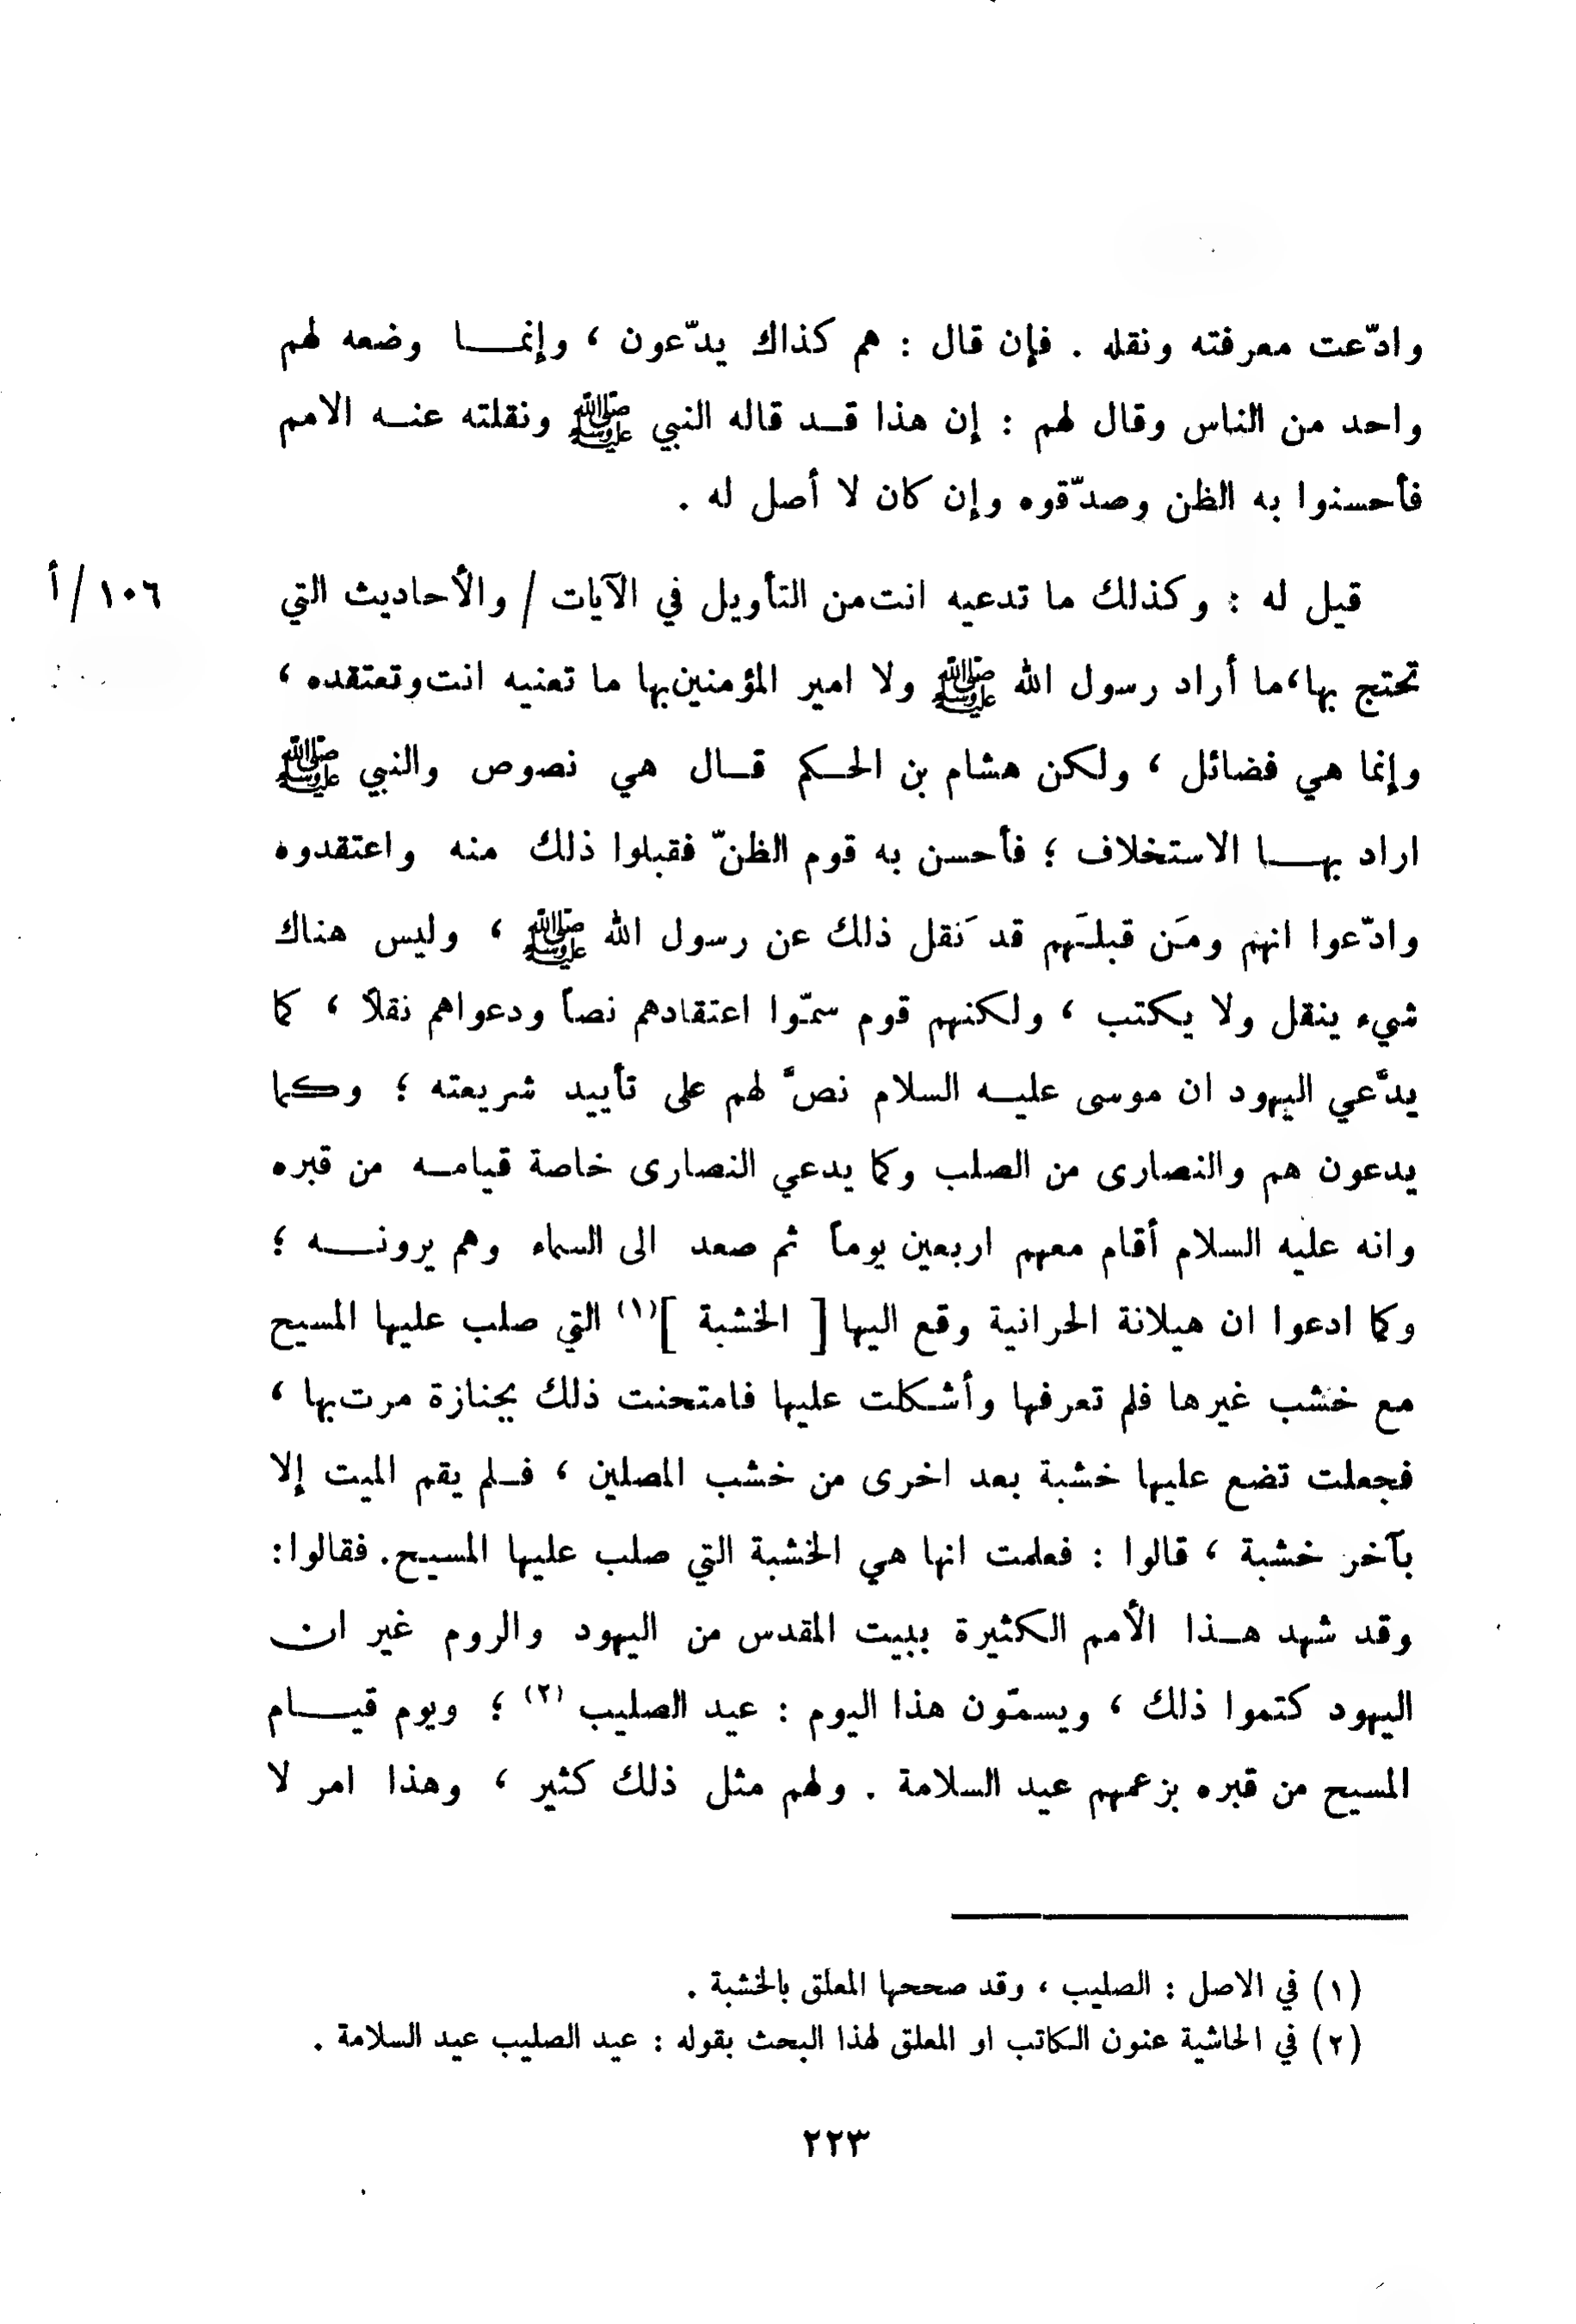 وادّعت معرفته ونقله . فإن قال : هم كذاك يدّعون ، وإنمـــا وضعه لهم
واحد من الناس وقال لهم : إن هذا قـد قاله النبي ﷺ ونقلته عنـه الامم
فأحسنوا به الظن وصدّقوه وإن كان لا أصل له .
قيل له : وكذلك ما تدعيه انت من التأويل في الآيات / والأحاديث التي
١٠٦/أ
تحتج بها، ما أراد رسول الله ﷺ ولا امير المؤمنين بها ما تعنيه انت وتعتقده ،
وإنما هي فضائل ، ولكن هشام بن الحـكم قـال هي نصوص والنبي ﷺ
اراد بهـــا الاستخلاف ؛ فأحسن به قوم الظنّ فقبلوا ذلك منه واعتقدوه
وادّعوا انهم ومَن قبلَهم قد نَقل ذلك عن رسول الله ﷺ ، وليس هناك
شيء ينقل ولا يكتب ، ولكنهم قوم سمّوا اعتقادهم نصاً ودعواهم نقلاً ، كما
يدّعي اليهود ان موسى عليـه السلام نصّ لهم على تأييد شريعته ؛ وكما
يدعون هم والنصارى من الصلب وكما يدعي النصارى خاصة قيامـه من قبره
وانه عليه السلام أقام معهم اربعين يوماً ثم صعد الى السماء وهم يرونــه ؛
وكما ادعوا ان هيلانة الحرانية وقع اليها [ الخشبة ](١) التي صلب عليها المسيح
مع خشب غيرها فلم تعرفها وأشكلت عليها فامتحنت ذلك بجنازة مرت بها ،
فجعلت تضع عليها خشبة بعد اخرى من خشب المصلين ، فـلم يقم الميت إلا
بآخر خشبة ، قالوا : فعلمت انها هي الخشبة التي صلب عليها المسيح. فقالوا:
وقد شهد هـذا الأمم الكثيرة ببيت المقدس من اليهود والروم غير ان
اليهود كتموا ذلك ، ويسمّون هذا اليوم : عيد الصليب (٢) ؛ ويوم قيـــام
المسيح من قبره بزعمهم عيد السلامة . ولهم مثل ذلك كثير ، وهذا امر لا
(١) في الاصل : الصليب ، وقد صححها المعلق بالخشبة .
(٢) في الحاشية عنون الكاتب او المعلق لهذا البحث بقوله : عيد الصليب عيد السلامة .
٢٢٣